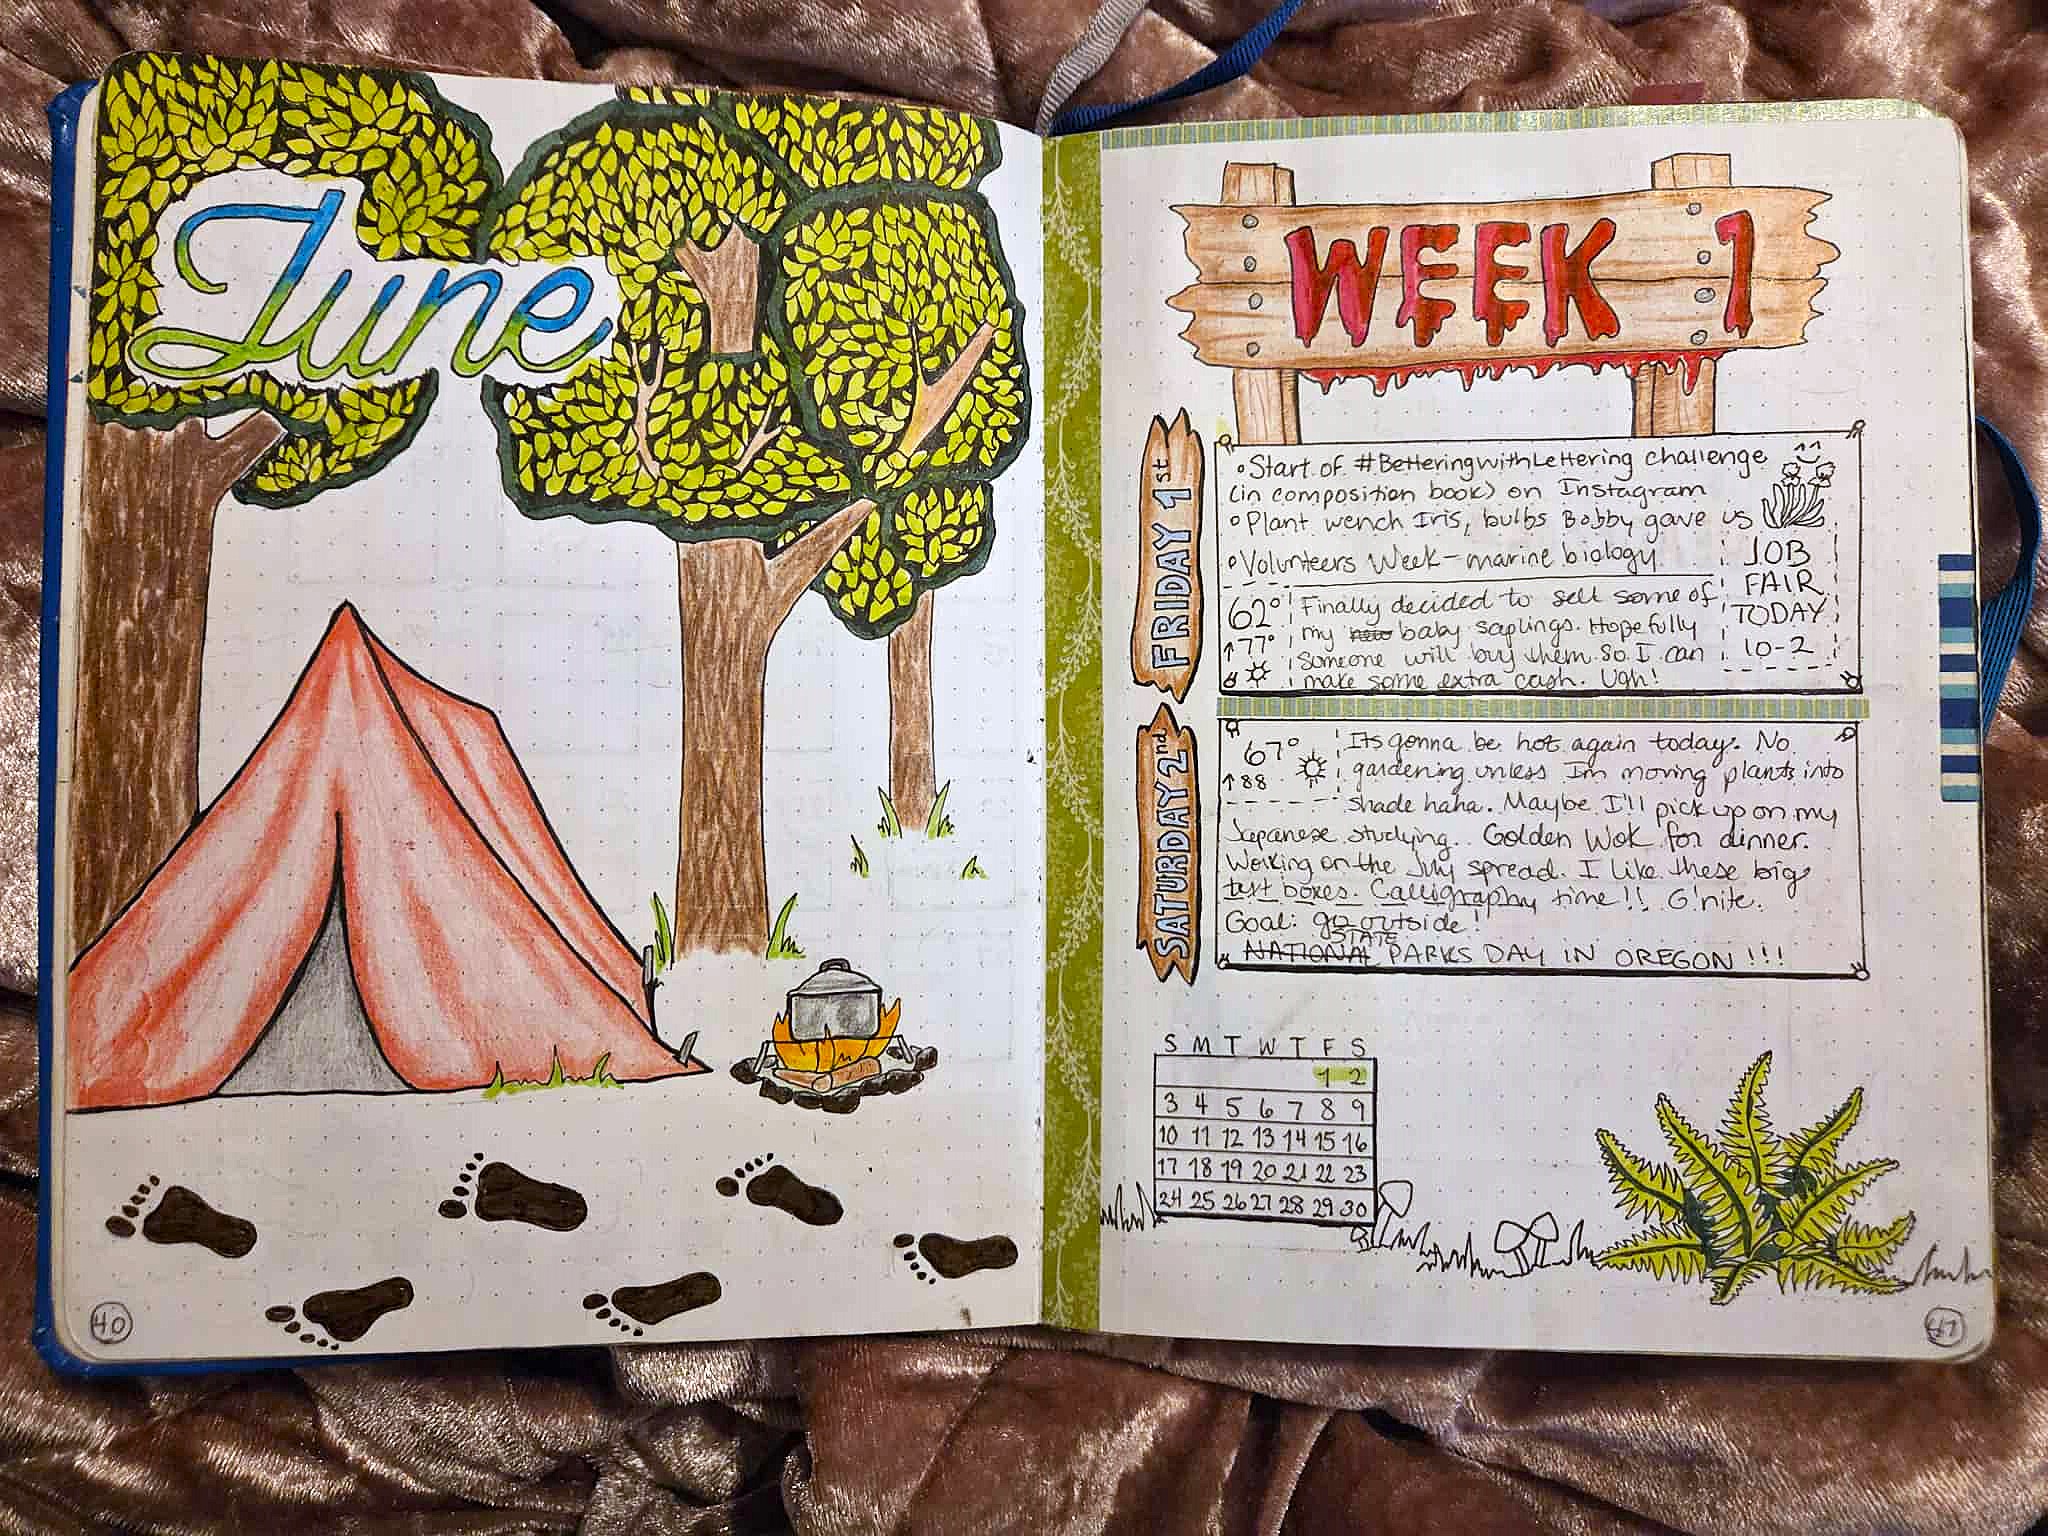 June
40
WEEK 1
FRIDAY 1st
• Start of #BetteringwithLettering challenge
(in composition book) on Instagram
• Plant wench Iris, bulbs Bobby gave us
• Volunteers Week - marine biology
JOB
FAIR
TODAY
10-2
62°
↑77°
Finally decided to sell some of
my new baby saplings. Hopefully
someone will buy them so I can
make some extra cash. Ugh!
SATURDAY 2nd
67°
↑88
Its gonna be hot again today. No
gardening unless Im moving plants into
shade haha. Maybe I'll pick up on my
Japanese studying. Golden Wok for dinner.
Working on the July spread. I like these big
text boxes. Calligraphy time!! G'nite.
Goal: go outside!
STATE
NATIONAL PARKS DAY IN OREGON!!!
S M T W T F S
1 2
3 4 5 6 7 8 9
10 11 12 13 14 15 16
17 18 19 20 21 22 23
24 25 26 27 28 29 30